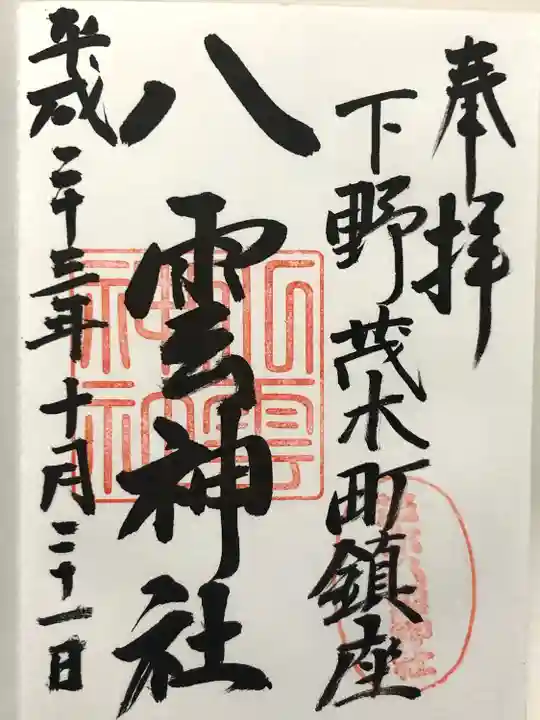 奉拝
下野茂木町鎮座
八雲神社
八雲神社
平成二十三年十月二十一日